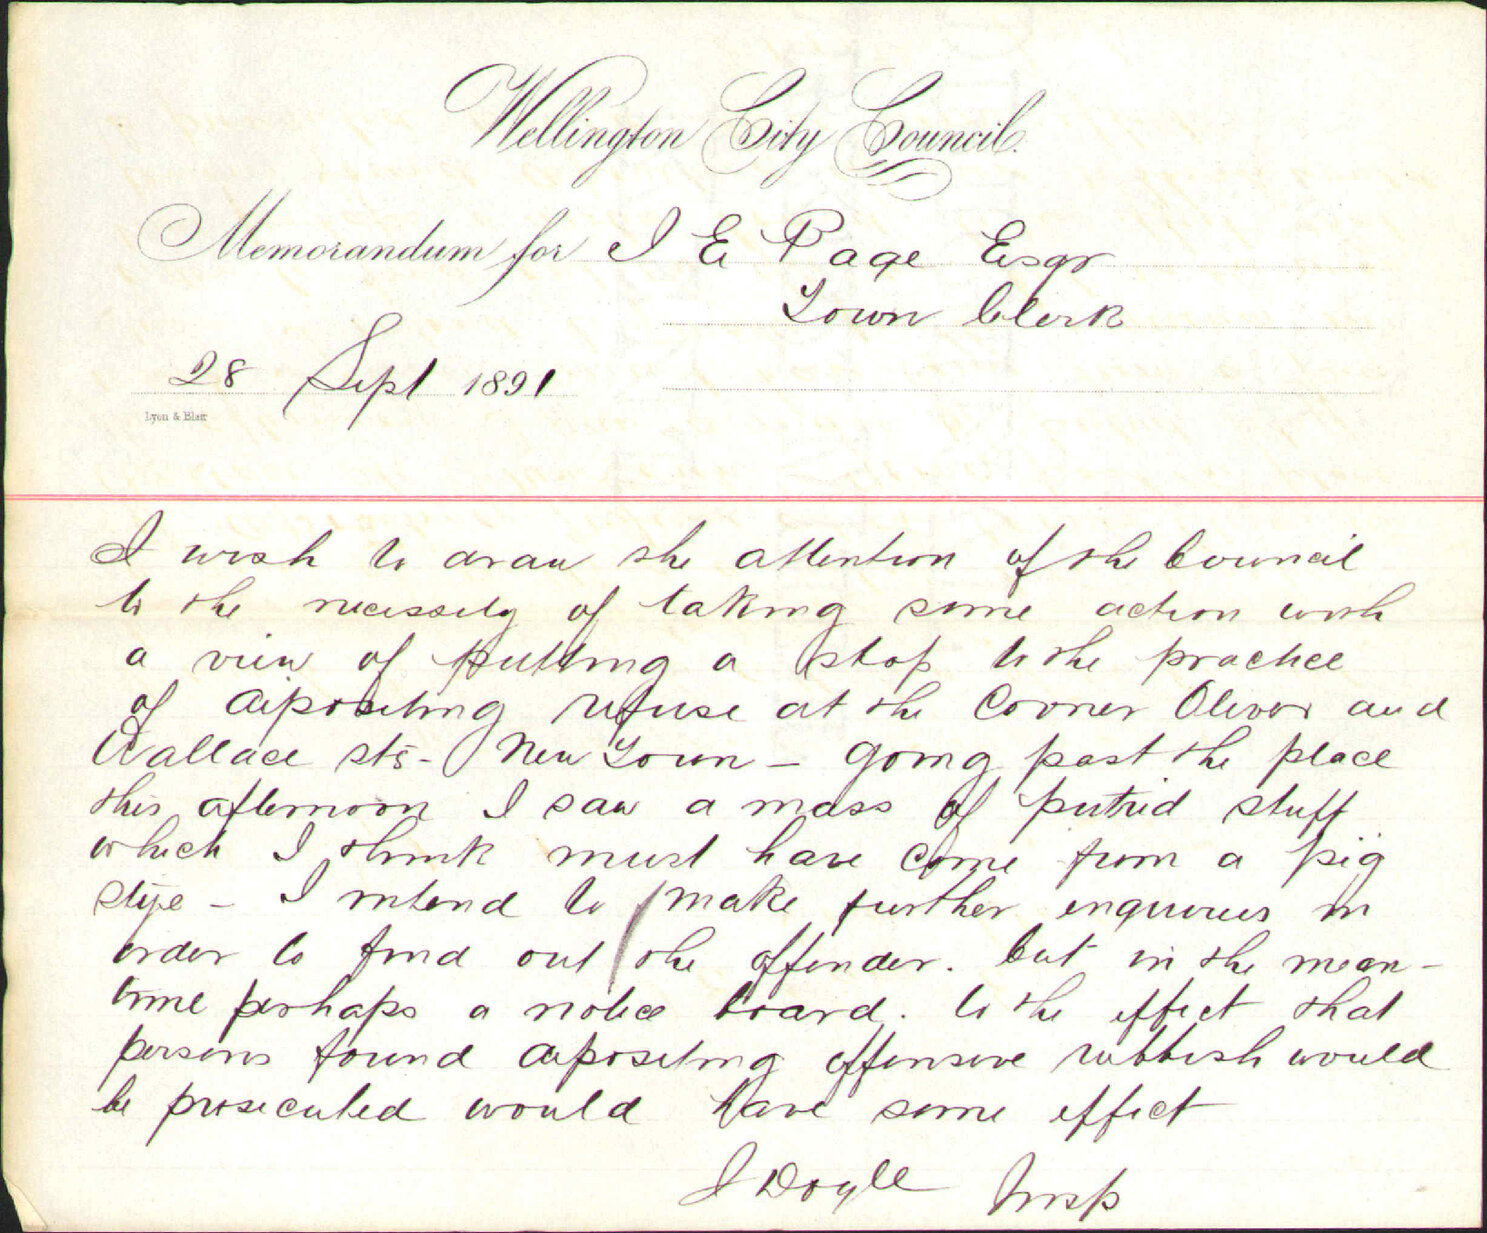 Wellington City Council.
Memorandum for J E Page Esqr
Town Clerk
28 Sept 1891
Lyon & Blair
I wish to draw the attention of the Council
to the necessity of taking some action with
a view of putting a stop to the practice
of depositing refuse at the Corner Oliver and
Wallace sts - New Town - going past the place
this afternoon I saw a mass of putrid stuff
which I think must have come from a pig
stye - I intend to make further enquiries in
order to find out the offender. but in the mean-
time perhaps a notice board. to the effect that
persons found depositing offensive rubbish would
be prosecuted would have some effect
J Doyle Insp